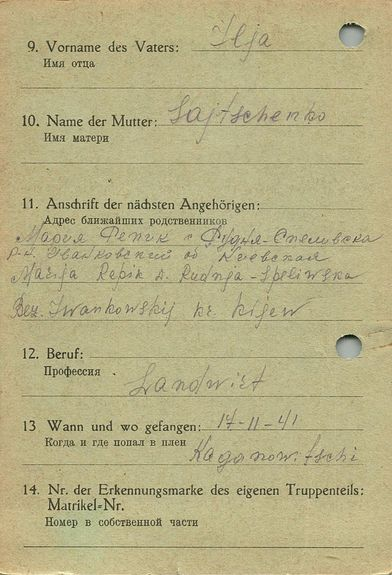 9. Vorname des Vaters: Ilja
Имя отца
10. Name der Mutter: Sajtschenko
Имя матери
11. Anschrift der nächsten Angehörigen:
Адрес ближайших родственников
Мария Репик с Рудня-Спеловска
р-н Иванковский об Киевская
Marija Repik D. Rudnja-Speliwska
Bez. Iwankowskij Kr. Kijew
12. Beruf:
Профессия
Landwirt
13 Wann und wo gefangen: 17-11-41
Когда и где попал в плен
Kaganowitschi
14. Nr. der Erkennungsmarke des eigenen Truppenteils:
Matrikel=Nr.
Номер в собственной части